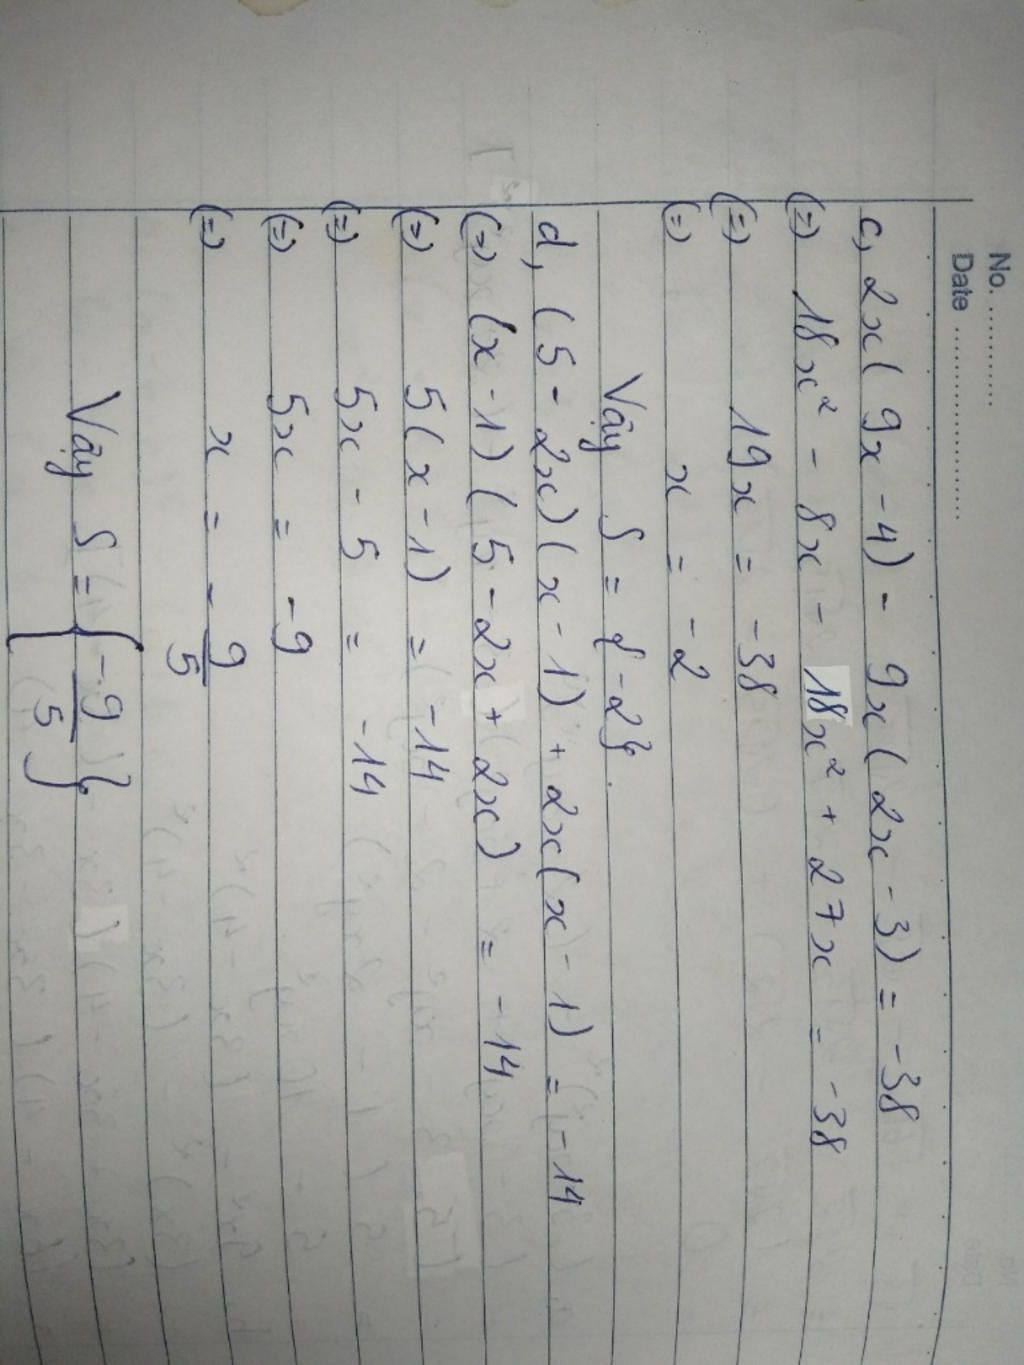 No. ............
Date ....................
c, 2x(9x - 4) - 9x(2x - 3) = -38
(=) 18x² - 8x - 18x² + 27x = -38
(=) 19x = -38
(=) x = -2
Vậy S = {-2}.
d, (5 - 2x)(x - 1) + 2x(x - 1) = -14
(=) (x - 1)(5 - 2x + 2x) = -14
(=) 5(x - 1) = -14
(=) 5x - 5 = -14
(=) 5x = -9
(=) x = -9/5
Vậy S = {-9/5}